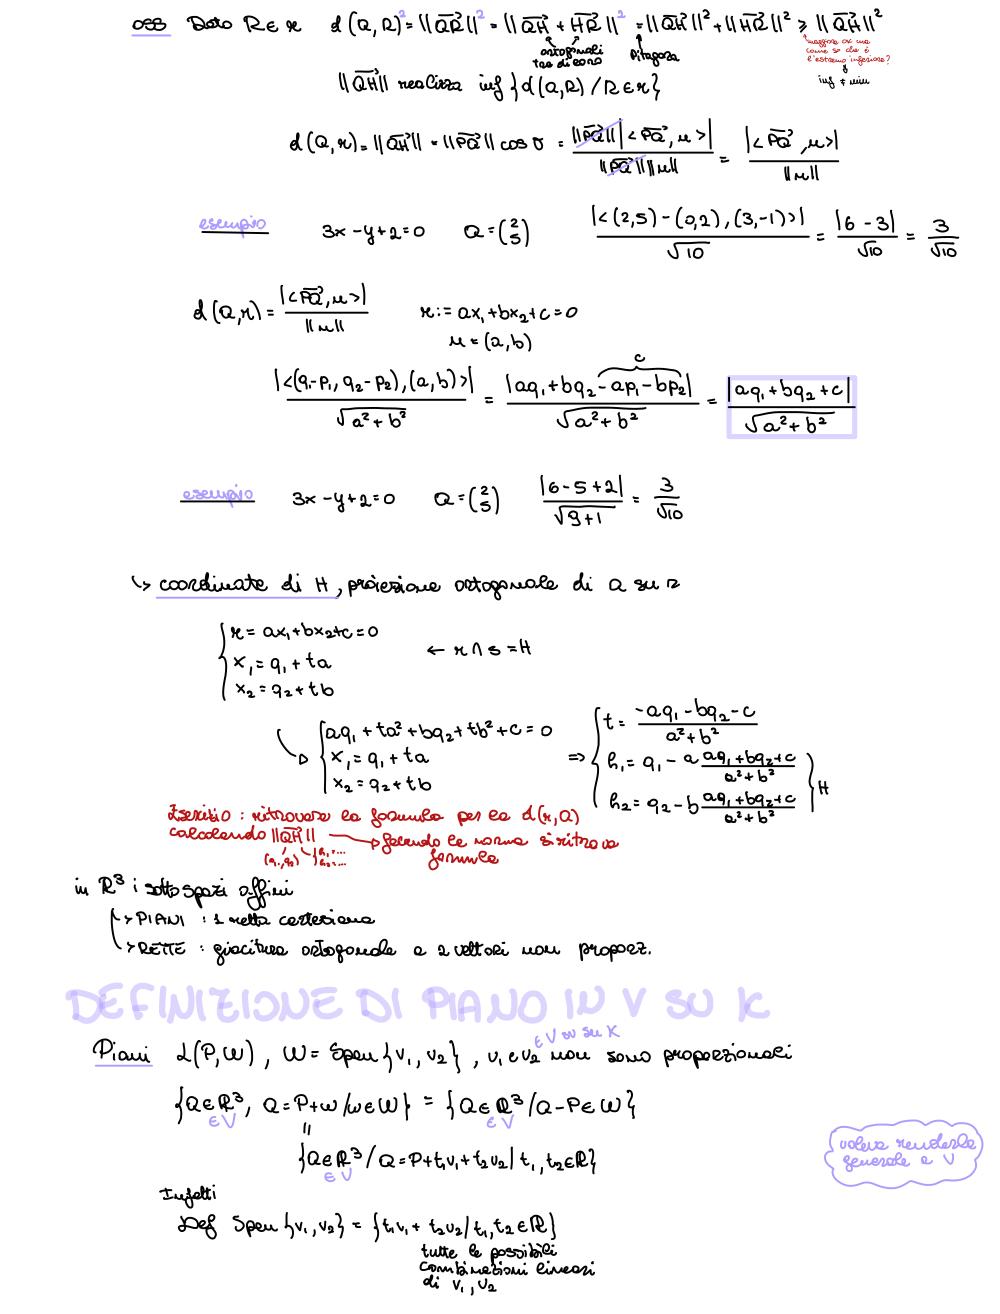 oss Dato R∈r d(Q,R)² = ||QR||² = ||QH + HR||² = ||QH||² + ||HR||² ≥ ||QH||²
ortogonali tra di loro
Pitagora
maggiore ok ma come so che è l'estremo inferiore?
inf ≠ min
||QH|| realizza inf {d(Q,R) / R∈r}
d(Q,r) = ||QH|| = ||PQ|| cos σ = ||PQ|| |<PQ, u>| / ||PQ|| ||u|| = |<PQ, u>| / ||u||
esempio 3x - y + 2 = 0 Q = (2 5) |<(2,5) - (0,2), (3,-1)>| / √10 = |6 - 3| / √10 = 3 / √10
d(Q,r) = |<PQ, u>| / ||u|| r := ax₁ + bx₂ + c = 0
u = (a,b)
|<(q₁-p₁, q₂-p₂), (a,b)>| / √a²+b² = |aq₁ + bq₂ - ap₁ - bp₂| / √a²+b² = |aq₁ + bq₂ + c| / √a²+b²
c
esempio 3x - y + 2 = 0 Q = (2 5) |6 - 5 + 2| / √9+1 = 3 / √10
↳ coordinate di H, proiezione ortogonale di Q su r
{ r = ax₁ + bx₂ + c = 0
x₁ = q₁ + ta ← r ∩ s = H
x₂ = q₂ + tb
{ aq₁ + ta² + bq₂ + tb² + c = 0 ⇒ { t = -aq₁ - bq₂ - c / a²+b²
x₁ = q₁ + ta h₁ = q₁ - a aq₁+bq₂+c / a²+b²
x₂ = q₂ + tb h₂ = q₂ - b aq₁+bq₂+c / a²+b² } H
Esercizio : ritrovare la formula per la d(r,Q)
calcolando ||QH|| → facendo la norma si ritrova formula
(q₁,q₂) { h₁ = ... h₂ = ...
in R³ i sottospazi affini
↳ PIANI : 1 retta cartesiana
↳ RETTE : giacitura ortogonale a 2 vettori non proporz.
DEFINIZIONE DI PIANO IN V SU K
∈ V sv su K
Piani L(P,W), W = Span{v₁, v₂}, v₁ e v₂ non sono proporzionali
{Q∈R³, Q = P+w / w∈W} = {Q∈R³ / Q-P∈W}
∈V ∈V
=
{Q∈R³ / Q = P + t₁v₁ + t₂v₂ | t₁, t₂∈R}
∈V
voleva renderla generale a V
Infatti
Def Span{v₁, v₂} = {t₁v₁ + t₂v₂ / t₁, t₂∈R}
tutte le possibili
combinazioni lineari
di v₁, v₂